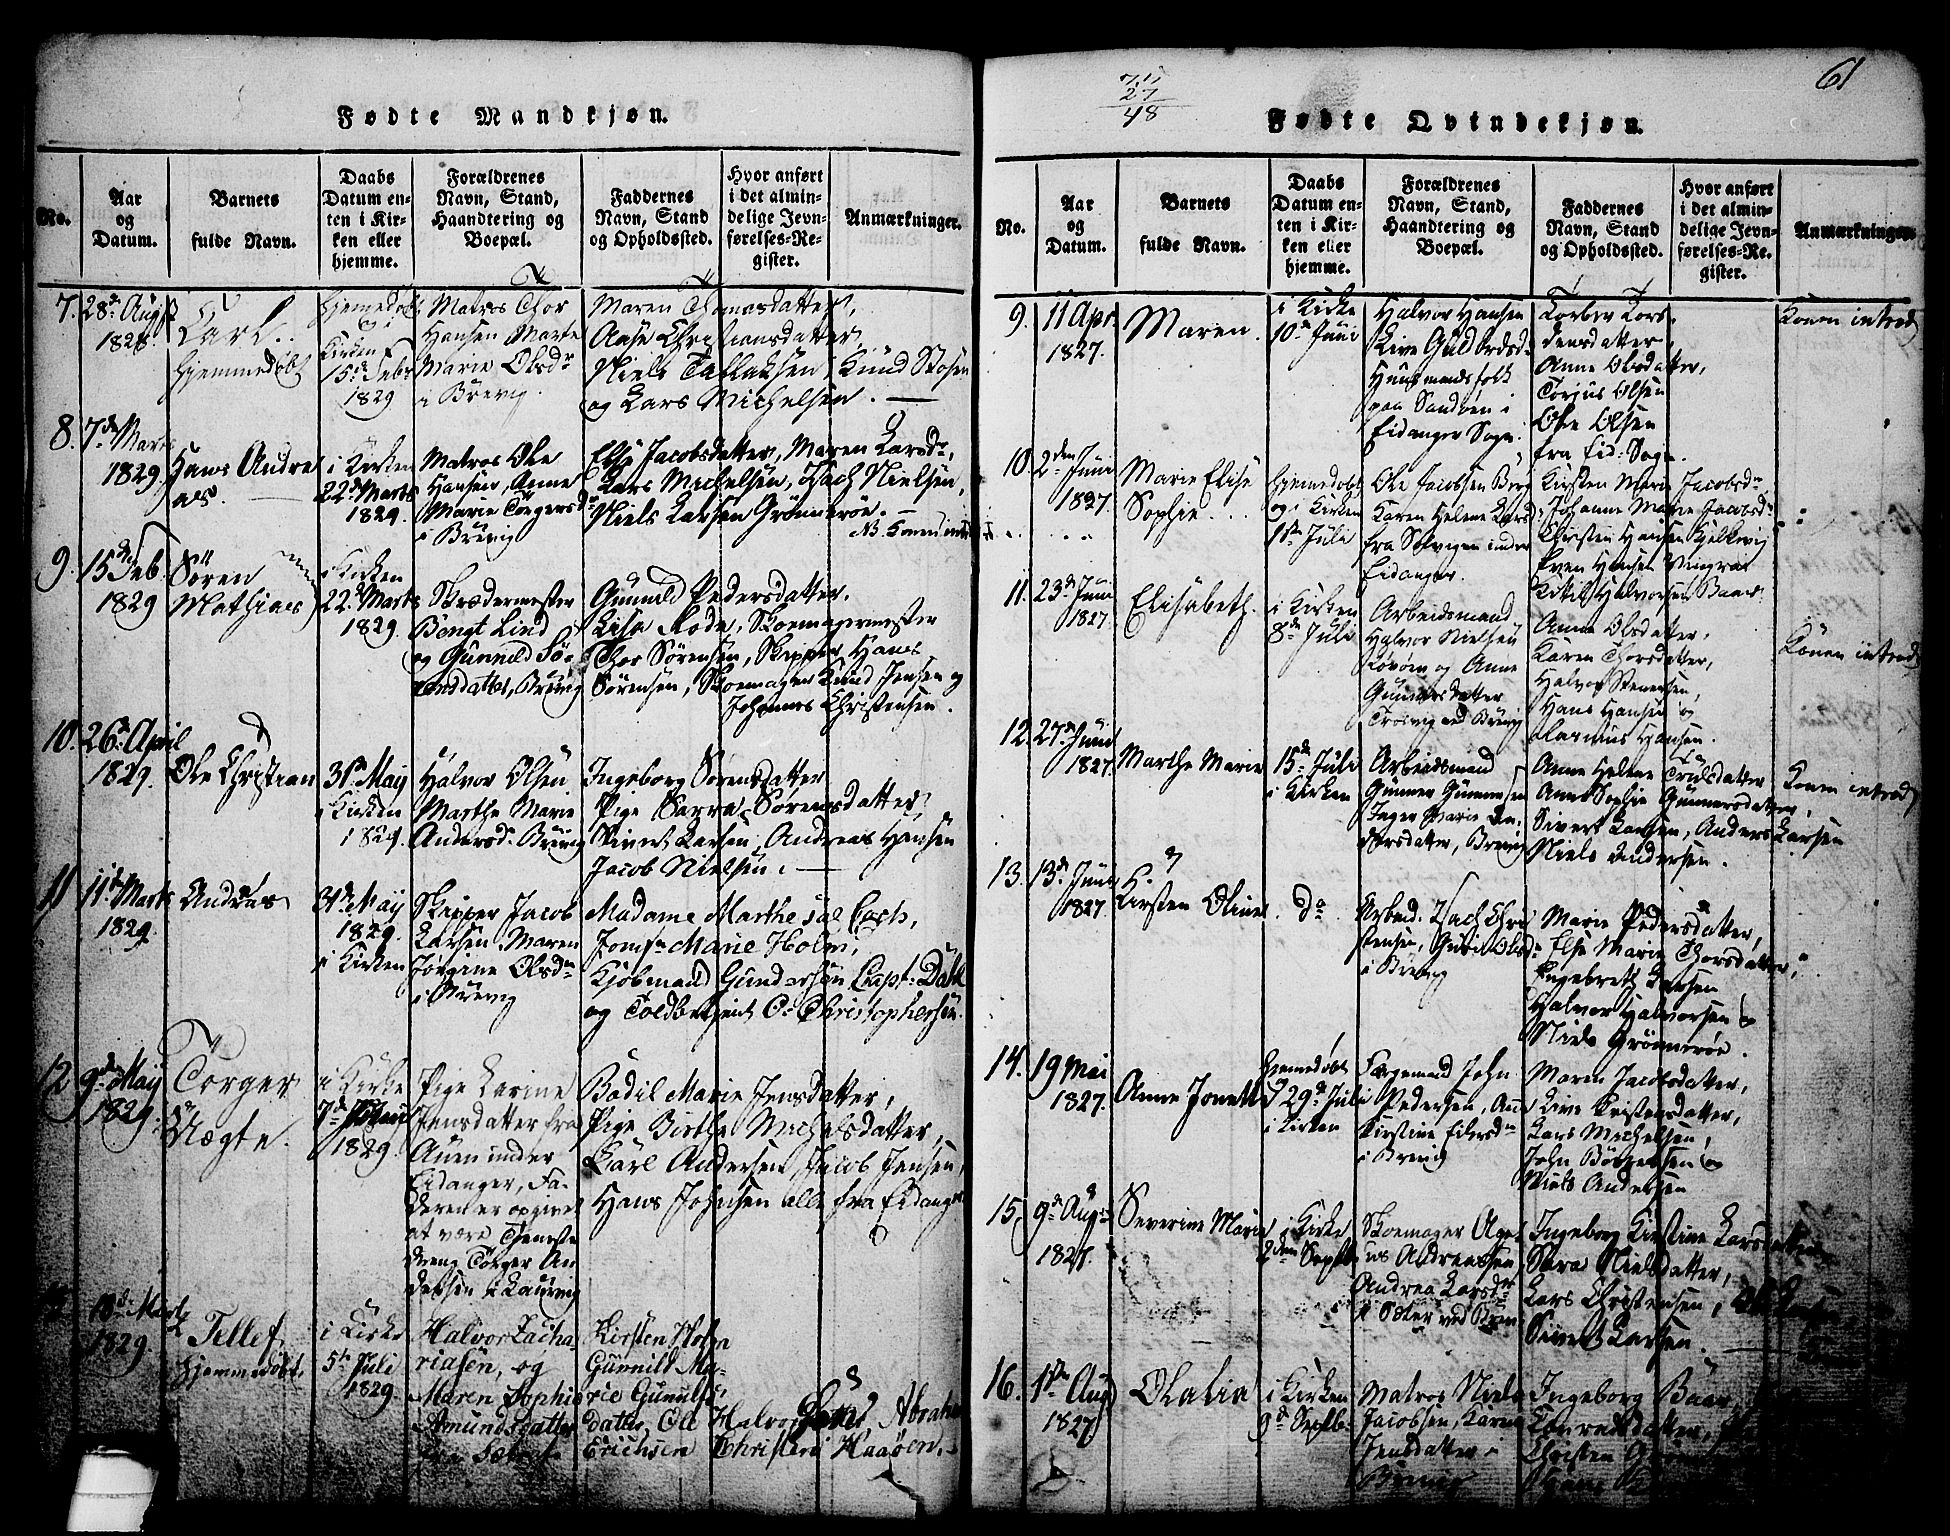 Fødte Mandkjøn.
No.
Aar
og
Datum.
Barnets
fulde Navn.
Daabs
Datum en-
ten i Kir-
ken eller
hjemme.
Forældrenes
Navn, Stand,
Haandtering og
Boepæl.
Faddernes
Navn, Stand
og Opholdssted.
Hvor anført
i det almin-
delige Jevn-
førelses-Re-
gister.
Anmærkninger.
7.
28de Augst
1828
Carl.
hjemmedøbt
hjemmedøbt
i
Kirken
15de Febr
1829
Matros Thor
Hansen Marte
Marie Olsdr
i Brevig.
Maren Thomasdatter,
Aase Christiansdatter,
Niels Tallaksen, Knud
og Lars Michelsen.
8.
7de Marts
1829
Hans Andre
as.
i Kirken
22de Marts
1829.
Matros Ole
Hansen, Anne
Marie Torgersdr
i Brevig
Else Jacobsdatter, Maren Larsdr,
Lars Michelsen, Isach Nielsen,
Niels Larsen Grønnerøe.
9.
15de Feb.
1829
Søren
Mathias
i Kirken
22de Marts
1829.
Skrædermester
Bengt Lind
og Gunnild Sø
rensdatter, Brevig
Gunnild Pedersdatter,
Lisa Rode, Skoemagermester
Thor Sørensen, Skipper Hans
Sørensen, Skoemager Knud Jensen og
Johannes Christensen.
10.
26de April
1829.
Ole Christian
31te May
i Kirken
1829.
Halvor Olsen
Marthe Marie
Andersdr Brevig
Ingeborg Sørensdatter
Pige Sarra Sørensdatter
Sivert Larsen, Andreas Hansen
Jacob Nielsen.
11
11te Marts
1829.
Andreas
31te May
1829.
i Kirken
Skipper Jacob
Larsen Maren
Jørgine Olsdr
i Brevig
Madame Marthe sal Coch,
Jomfr Marie Holm,
Kjøbmand Gundersen Capt: Dahl
og Toldbetjent O. Christophersen.
12
9de May
1829.
Torger
Uægte.
i Kirke
7de Juni
1829
Pige Karine
Jensdatter fra
Auen under
Eidanger, Fa-
deren er opgivet
at være Tjeneste
dreng Torger An
dersen i Laurvig
Bodil Marie Jensdatter,
Pige Birthe Michelsdatter,
Carl Andersen, Jacob Jensen,
Hans Johnsen alle fra Eidanger
18de Marts
1829
Tellef
hjemmedøbt.
i Kirke
5te Juli
1829
Halvor Zacha
riasen, og
Maren Sophie
Amundsdatter
Kirsten Hosen
Gunnild Ma-
rie Gunnilds
datter, Ole Halvorsen Abraham
Erichsen Christen Haaøen.
61
75
27
48
Fødte Qvindekjøn.
No.
Aar
og
Datum.
Barnets
fulde Navn.
Daabs
Datum en-
ten i Kir-
ken eller
hjemme.
Forældrenes
Navn, Stand,
Haandtering og
Boepæl.
Faddernes
Navn, Stand
og Opholdssted.
Hvor anført
i det almin-
delige Jevn-
førelses-Re-
gister.
Anmærkninger.
9.
11 Apr.
1827.
Maren.
i Kirke
10de Juni
Halvor Hansen
Live Guldbrdsd.
Huusmandsfolk
paa Sandøen i
Eidanger Sogn.
Torber Tors-
densdatter,
Anne Olsdatter,
Torjus Olsen
Ole Olsen
fra Eid: Sogn.
Konen introd
10.
2den Juni
1827.
Marie Elise
Sophie.
hjemmedøbt
og i Kirken
1ste Juli
Ole Jacobsen Berg
Karen Helene Larsd
fra under
Eidanger.
Kirsten Marie Jacobsdr
Johanne Marie Jacobsd
Christen Hansen
Even Hansen
Kittil Halvorsen
11.
23de Juni
1827.
Elisabeth.
i Kirken
8de Juli
Arbeidsmand
Halvor Nielsen
og Anne
Gunnersdatter
ved Brevig
Anne Olsdatter,
Karen Thorsdatter,
Halvor Stenersen,
Hans Hansen og
Rasmus Hansen.
Konen introd
12.
27de Juni
1827.
Marthe Marie
15de Juli
i Kirken
Arbeidsmand
Gunner Gunnersen
Inger Marie An-
dersdatter, Brevig
Anne Helene Trulsdatter
Anne Sophie Gunnersdatter,
Sivert Larsen, Anders Larsen
Niels Andersen.
Konen introd
13.
13de Juni
1827.
Kirsten Oline
do
Arbeid. Isach Chri
stensen, Guri Olsdr
i Brevig
Marie Pedersdatter,
Else Marie Thorsdatter,
Ingebrett Larsen
Halvor Halvorsen og
Niels Grønnerøe.
14.
19 Mai
1827.
Anne Jonette
hjemmedøbt
29de Juli
i Kirken
Færgemand John
Pedersen, Anne
Kirstine Eilersdr
i Brevig
Maren Jacobsdatter,
Live Kristensdatter,
Lars Michelsen,
John Børresen og
Niels Andersen
15.
9de Aug.
1827.
Severine Marie
i Kirke
2den Septbr
Skoemager Age-
us Andreassen
Andrea Larsdr
Ingeborg Kirstine Larsdatter
Sara Nielsdatter,
Lars Christensen,
Sivert Larsen.
16.
1ste Aug
1827
Olalia
i Kirken
9de Septbr.
Matros Niels
Jacobsen, Karen
Jensdatter i
Brevig
Ingeborg
Christen